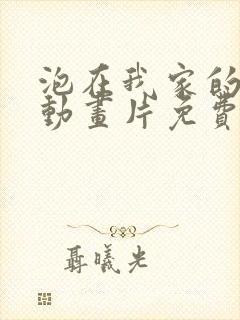 泡在我家的
動畫片免費
聶曦光